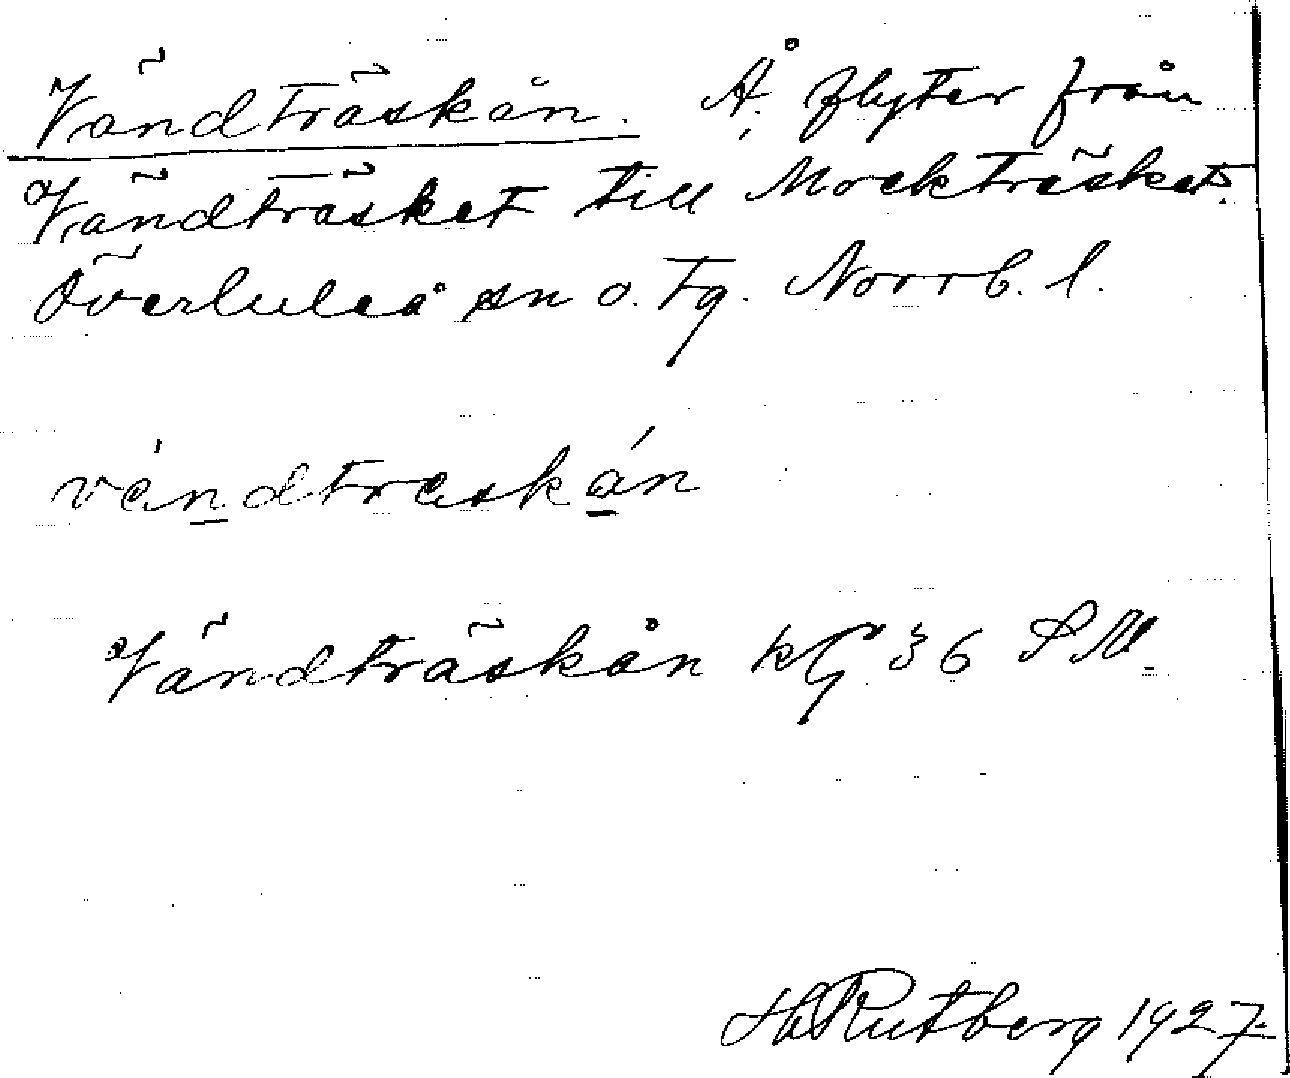 Vändträskån. Å. flyter från
Vändträsket till Mockträsket.
Överluleå sn o. tg. Norrb. l.
vèndtrӕskán
Vändträskån kG 36 SM.
Hb Rutberg 1927.